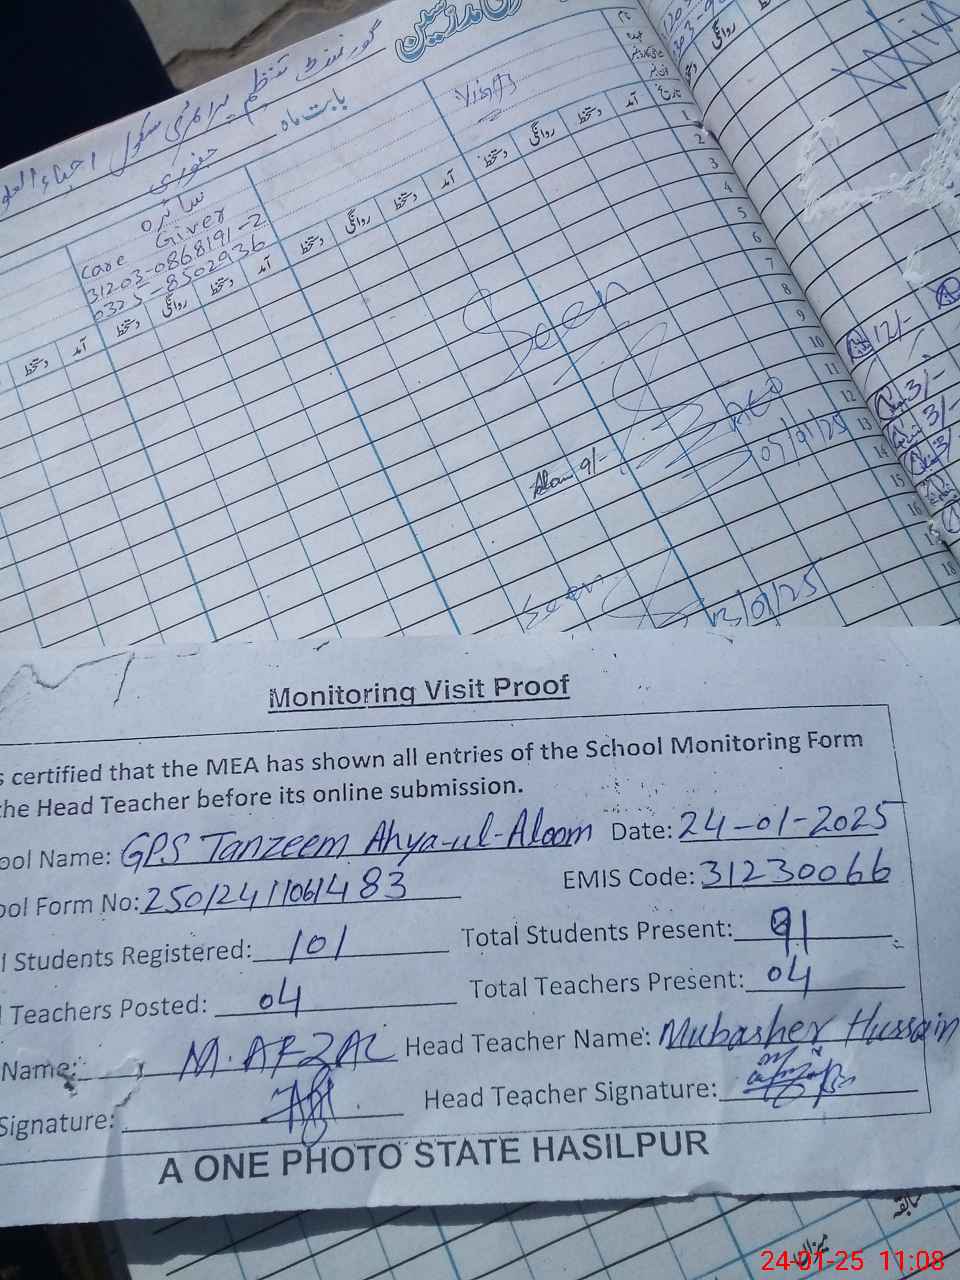 گورنمنٹ تنظیم پرائمری سکول احیاء العلوم
بابت ماہ
حضوری
سائرہ
Care Giver
31203-0868191-2
0325-8502936
Visits
نام
عہدہ
تاریخ آمد دستخط روانگی دستخط آمد دستخط روانگی دستخط آمد دستخط روانگی دستخط آمد دستخط
1
2
3
4
5
6
7
8
9
10
11
12
13
14
15
16
17
18
روانگی
12/-
3/-
3/-
9/-
07/01/25
Monitoring Visit Proof
certified that the MEA has shown all entries of the School Monitoring Form
the Head Teacher before its online submission.
ool Name: GPS Tanzeem Ahya-ul-Aloom Date: 24-01-2025
ool Form No: 25012411061483 EMIS Code: 31230066
l Students Registered: 101 Total Students Present: 91
Teachers Posted: 04 Total Teachers Present: 04
Name: M. AFZAL Head Teacher Name: Mubasher Hussain
Signature: Head Teacher Signature:
A ONE PHOTO STATE HASILPUR
سابقہ
میزان
24-01-25 11:08